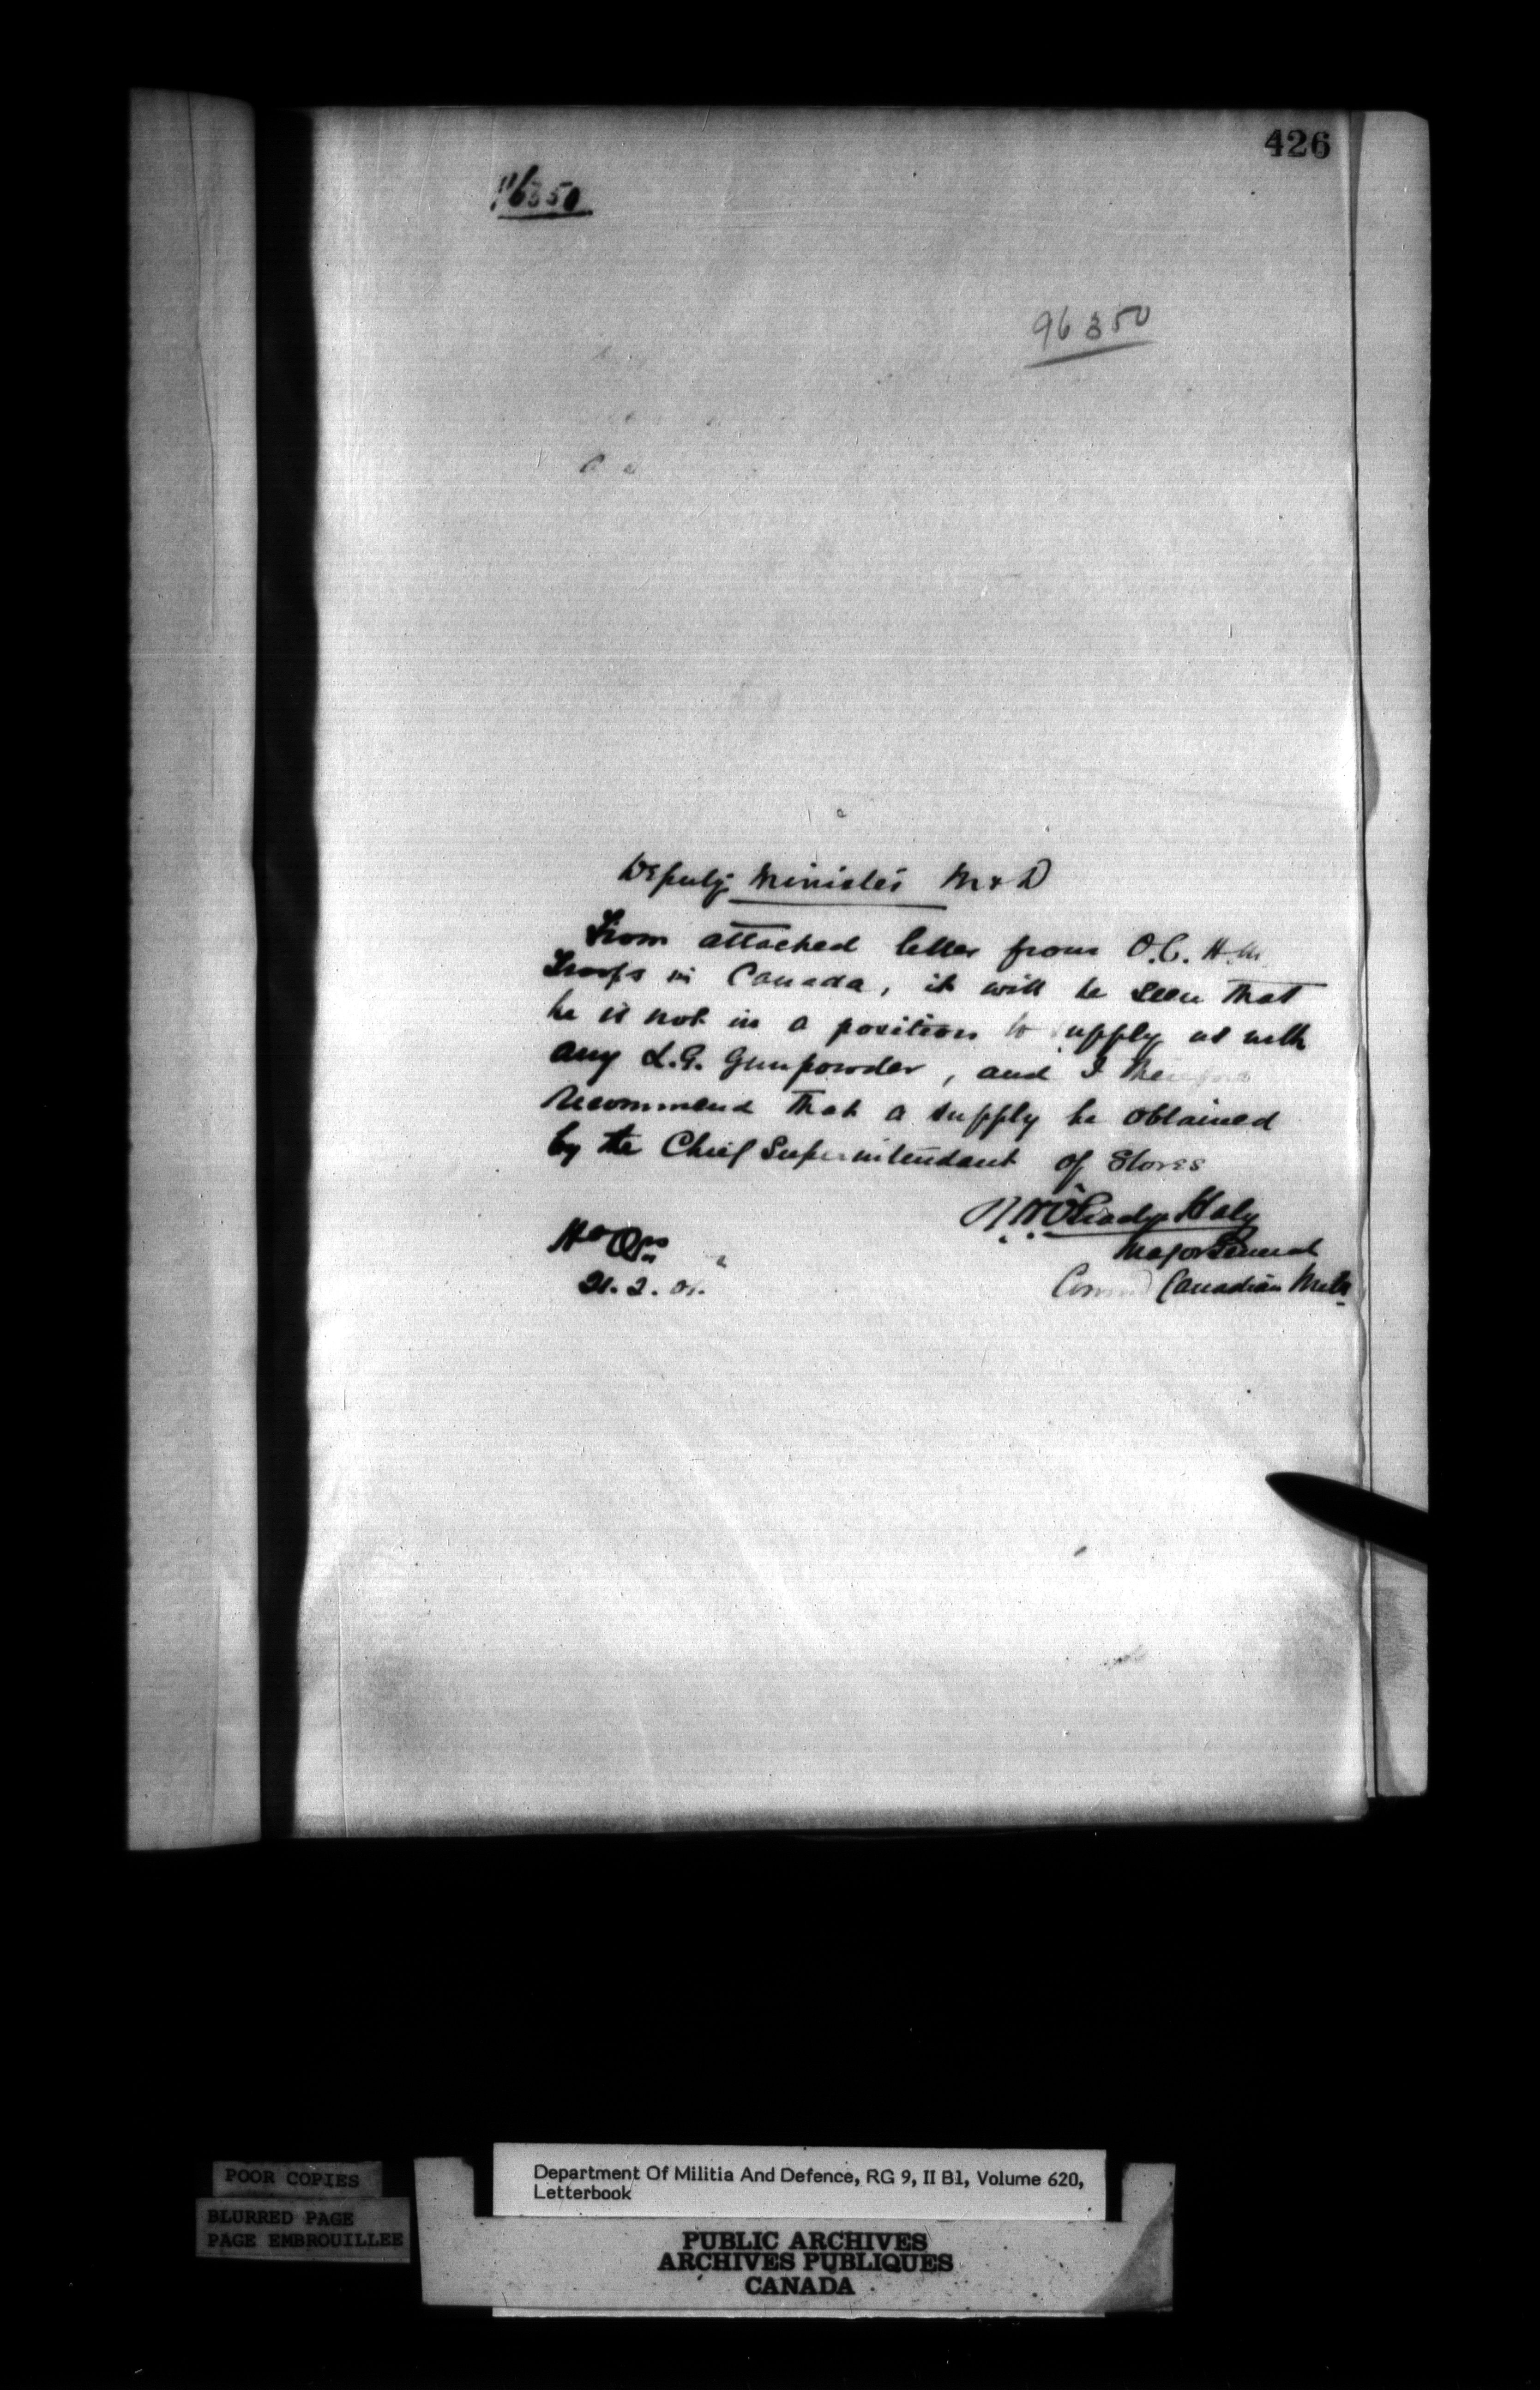 426
96350
96350
Deputy Minister M & D
From attached letter from O.C. H.M.
Troops in Canada, it will be seen that
he is not in a position to supply us with
any L.G. Gunpowder, and I therefore
recommend that a supply be obtained
by the Chief Superintendent of Stores
R. H. O'Grady Haly
Major General
Comd Canadian Mila
Hd Qrs
21.2.01.
POOR COPIES
BLURRED PAGE
PAGE EMBROUILLEE
Department Of Militia And Defence, RG 9, II B1, Volume 620,
Letterbook
PUBLIC ARCHIVES
ARCHIVES PUBLIQUES
CANADA